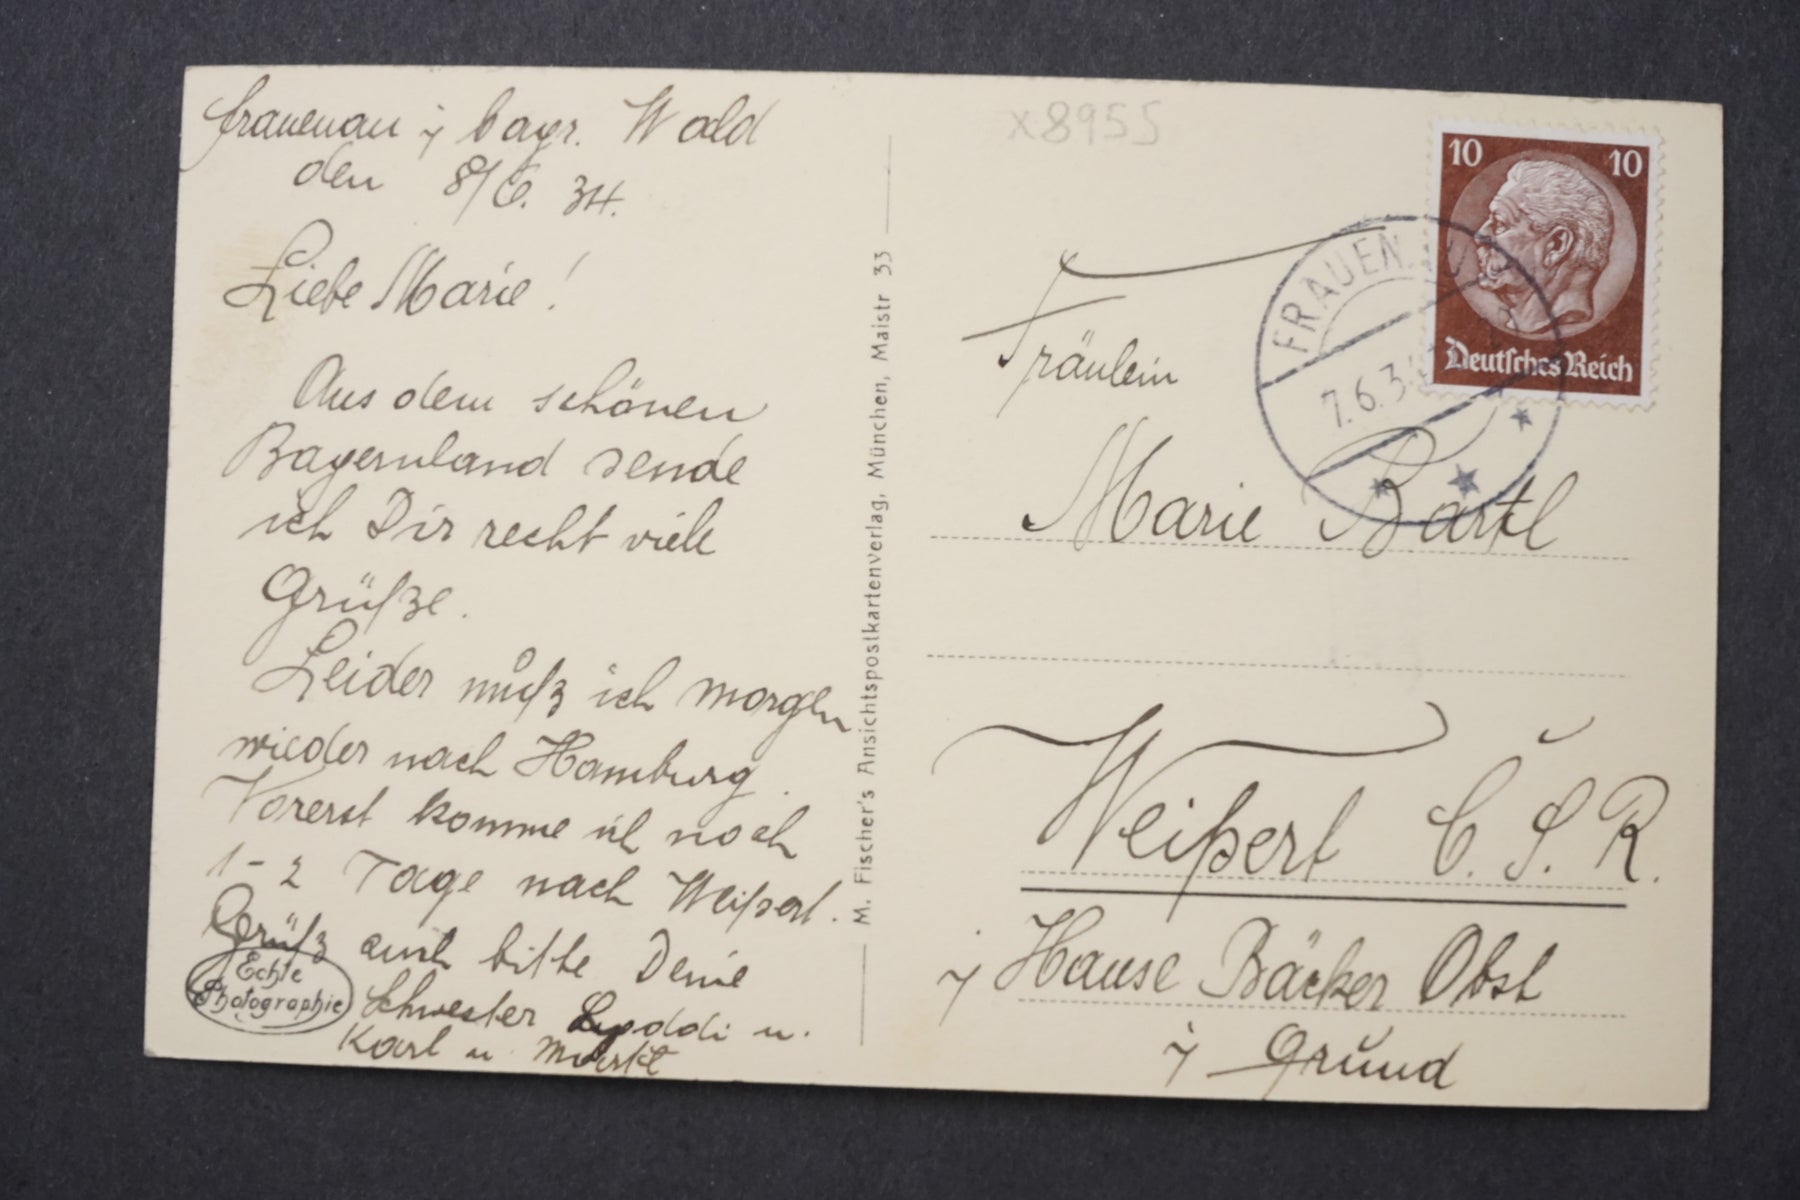 Frauenau i/ bayr. Wald
den 8/6. 34.
Liebe Marie!
Aus dem schönen
Bayernland sende
ich Dir recht viele
Grüße.
Leider muß ich morgen
wieder nach Hamburg.
Vorerst komme ich noch
1-2 Tage nach Weipert.
Grüß auch bitte Deine
Schwester u.
Karl u.
Echte
Photographie
M. Fischer's Ansichtspostkartenverlag, München, Maistr 33
x8955
10 10
Deutsches Reich
FRAUENAU
7.6.34
Fräulein
Marie Bartl
Weipert Č. S. R.
i/ Hause Bäcker Obst
i/ Grund